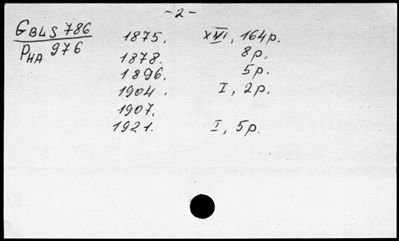 -2-
GBLS 786 1875. XVI, 164p.
PHA 976 1878. 8p.
1896. 5p.
1904. I, 2p.
1907.
1921. I, 5p.